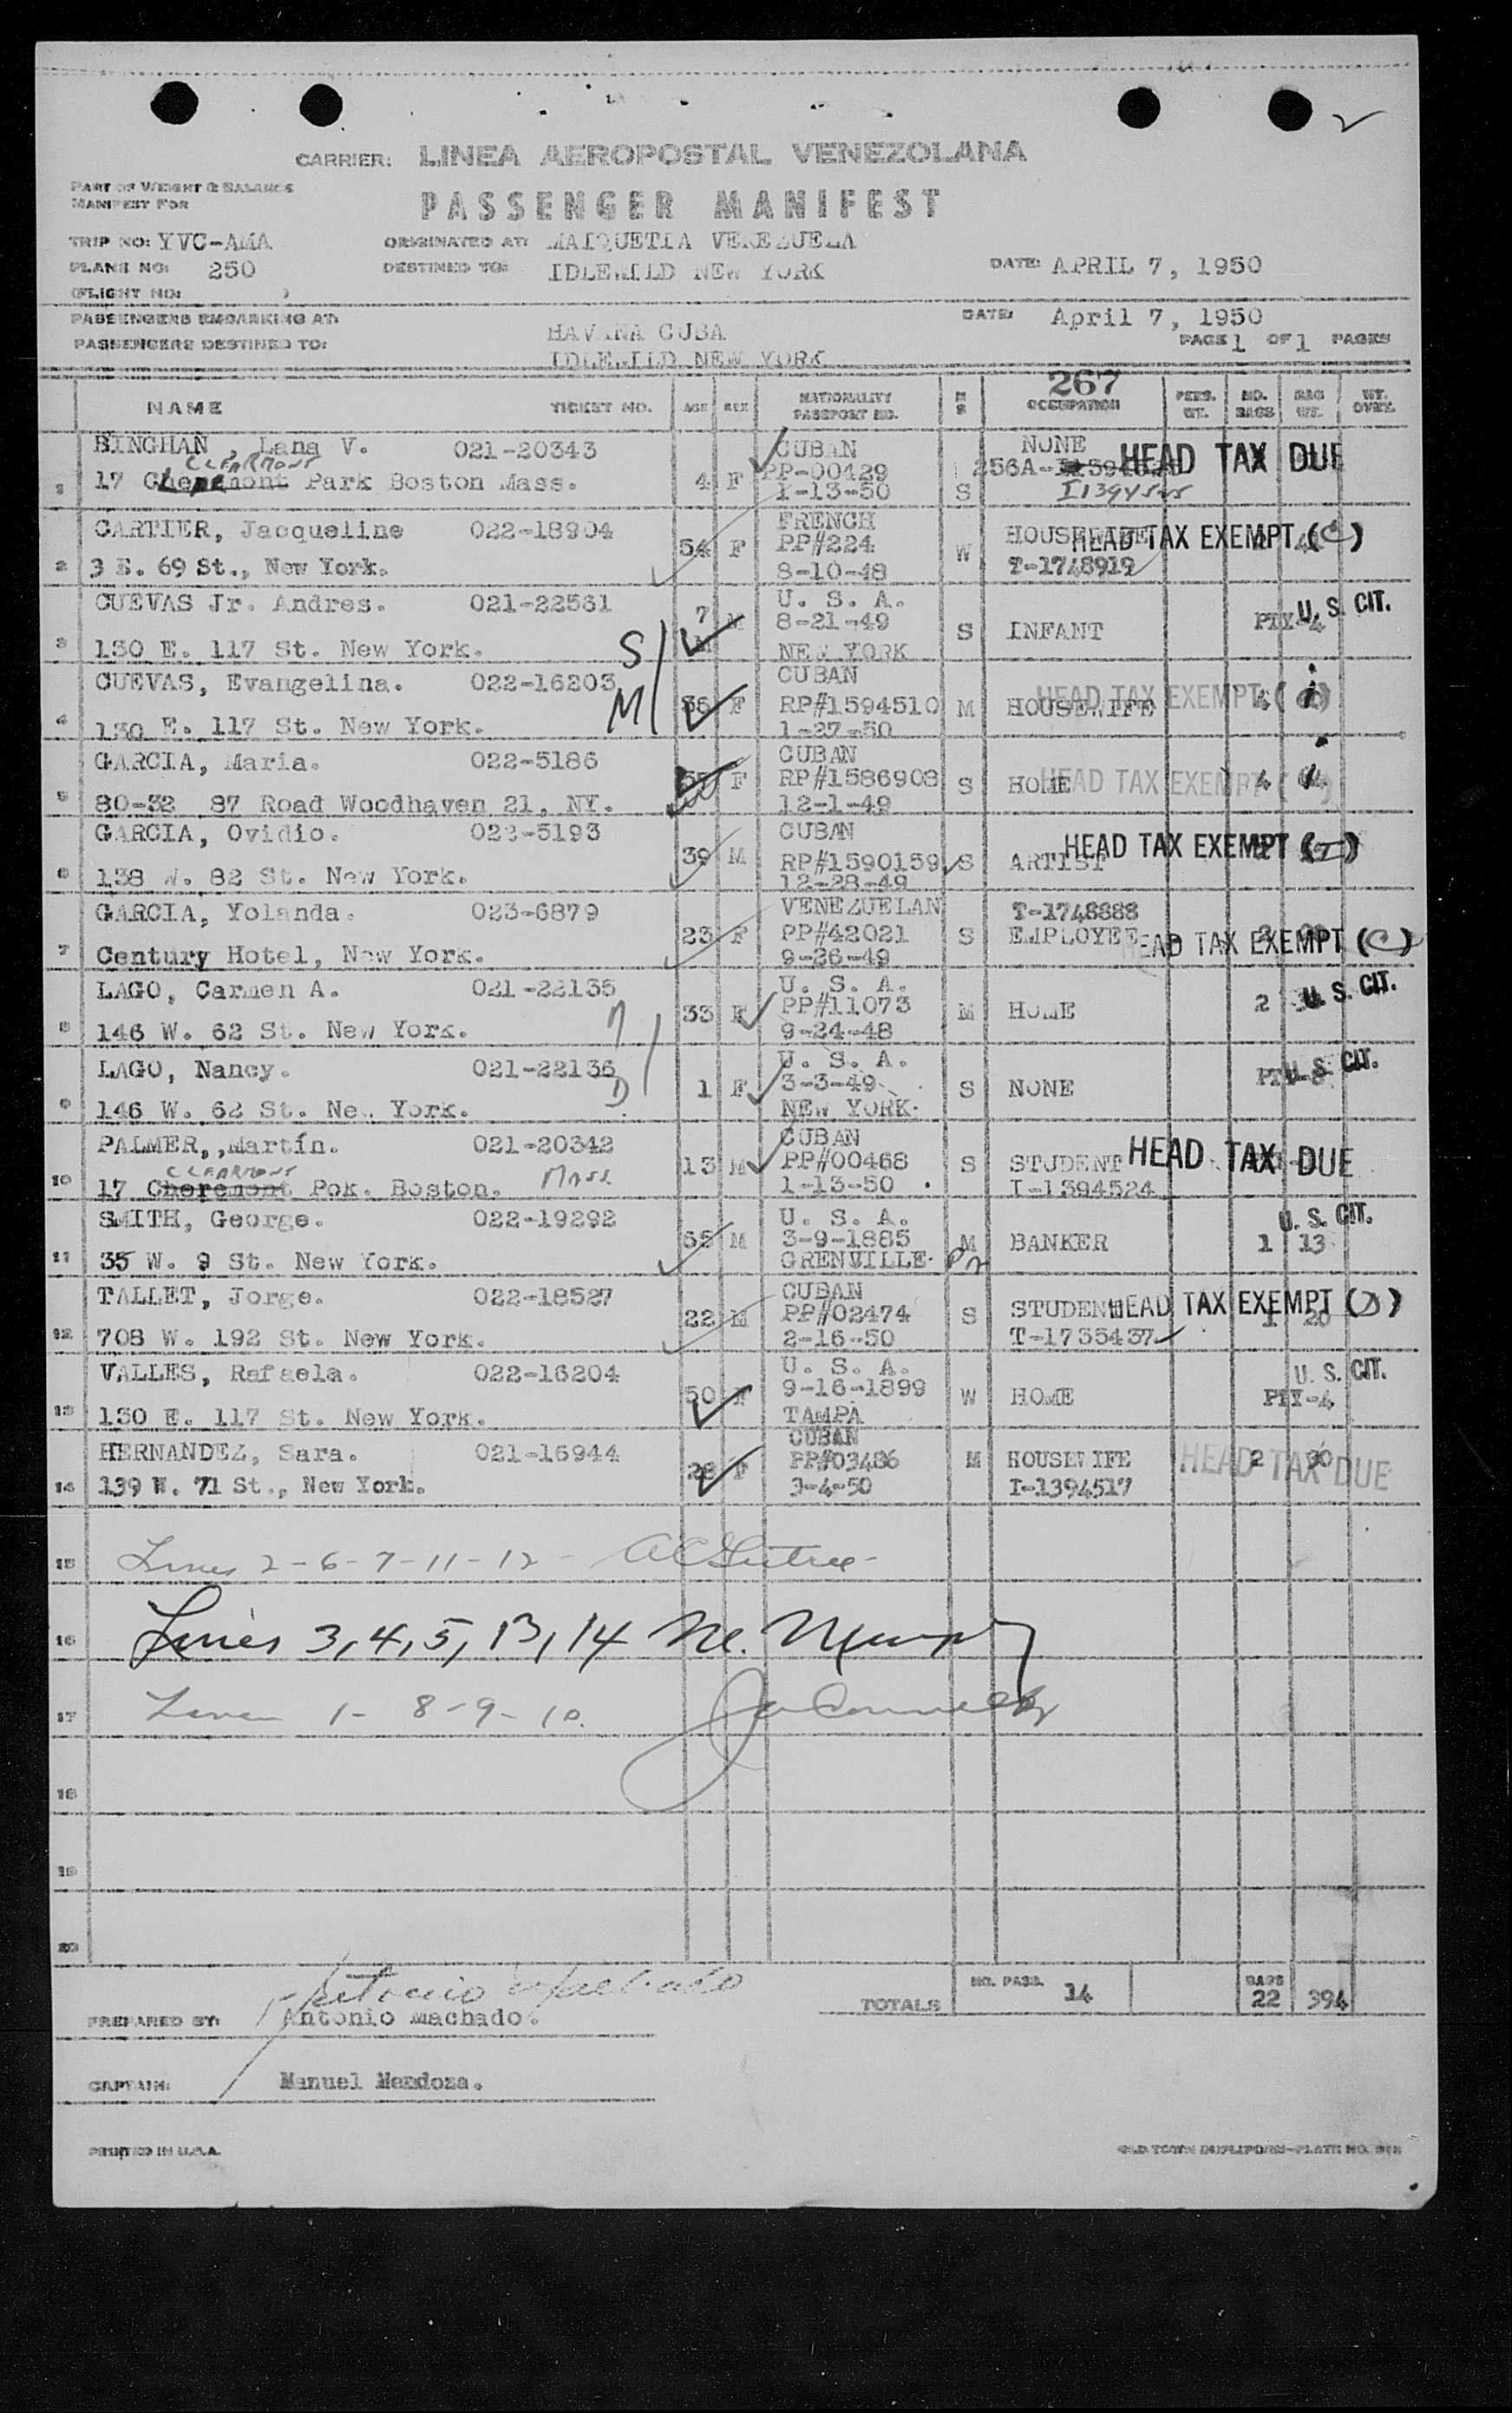 CARRIER: LINEA AEROPOSTAL VENEZOLANA
PART OF WEIGHT & BALANCE
MANIFEST FOR
PASSENGER MANIFEST
TRIP NO: YVC-AMA ORIGINATED AT: MAIQUETIA VENEZUELA
PLANE NO: 250 DESTINED TO: IDLEWILD NEW YORK DATE: APRIL 7, 1950
(FLIGHT NO: )
PASSENGERS EMBARKING AT: HAVANA CUBA DATE: April 7, 1950
PASSENGERS DESTINED TO: IDLEWILD NEW YORK PAGE 1 OF 1 PAGES
267
NAME TICKET NO. AGE SEX NATIONALITY PASSPORT NO. M S OCCUPATION PERS. WT. NO. BAGS BAG WT. WT. OVER.
BINGHAN , Lana V. 021-20343 CUBAN NONE HEAD TAX DUE
CLEARMONT
1 17 Cheremont Park Boston Mass. 4 F PP-00429 256A-
1-13-50 S I1394525
CARTIER, Jacqueline 022-18904 FRENCH HOUSEWIFE HEAD TAX EXEMPT (C)
54 F PP#224 W
2 3 E. 69 St., New York. 8-10-48 T-1748919
CUEVAS Jr. Andres. 021-22561 U. S. A. U. S. CIT.
7 M M 8-21-49 S INFANT PTY-4
3 130 E. 117 St. New York. S NEW YORK
CUEVAS, Evangelina. 022-16203 CUBAN HEAD TAX EXEMPT
M 36 F RP#1594510 M HOUSEWIFE 4
4 130 E. 117 St. New York. 1-27-50
GARCIA, Maria. 022-5186 CUBAN
F RP#1586908 S HOME HEAD TAX EXEMPT 4
5 80-32 87 Road Woodhaven 21, NY. 12-1-49
GARCIA, Ovidio. 023-5193 CUBAN HEAD TAX EXEMPT (I)
39 M RP#1590159 S ARTIST
6 138 W. 82 St. New York. 12-28-49
GARCIA, Yolanda. 023-6879 VENEZUELAN T-1748888
23 F PP#42021 S EMPLOYEE HEAD TAX EXEMPT (C)
7 Century Hotel, New York. 9-26-49
LAGO, Carmen A. 021-22135 U. S. A. U. S. CIT.
33 F PP#11073 M HOME 2
8 146 W. 62 St. New York. M 9-24-48
LAGO, Nancy. 021-22136 U. S. A. U. S. CIT.
D 1 F 3-3-49 S NONE
9 146 W. 62 St. New York. NEW YORK
PALMER,,Martín. 021-20342 CUBAN
CLEARMONT 13 M PP#00468 S STUDENT HEAD TAX DUE
10 17 Cheremont Pok. Boston. Mass 1-13-50 I-1394524
SMITH, George. 022-19292 U. S. A. U. S. CIT.
65 M 3-9-1885 M BANKER 1 13
11 35 W. 9 St. New York. GRENVILLE Pa
TALLET, Jorge. 022-18527 CUBAN
22 M PP#02474 S STUDENT HEAD TAX EXEMPT (D) 1 20
12 708 W. 192 St. New York. 2-16-50 T-1735437
VALLES, Rafaela. 022-16204 U. S. A. U. S. CIT.
50 F 9-16-1899 W HOME PTY-4
13 130 E. 117 St. New York. TAMPA
HERNANDEZ, Sara. 021-16944 CUBAN
28 F PP#03486 M HOUSEWIFE 2 30 HEAD TAX DUE
14 139 W. 71 St., New York. 3-4-50 I-1394517
15 Lines 2-6-7-11-12-
16 Lines 3,4,5,13,14 M. Murphy
17 Lines 1- 8-9-10. Connelly
18
19
20
Antonio Machado
TOTALS NO. PASS. 14 BAGS 22 394
PREPARED BY: Antonio Machado.
CAPTAIN: Manuel Mendoza.
PRINTED IN U.S.A. OLD TOWN DUPLIFORM-PLATE NO.